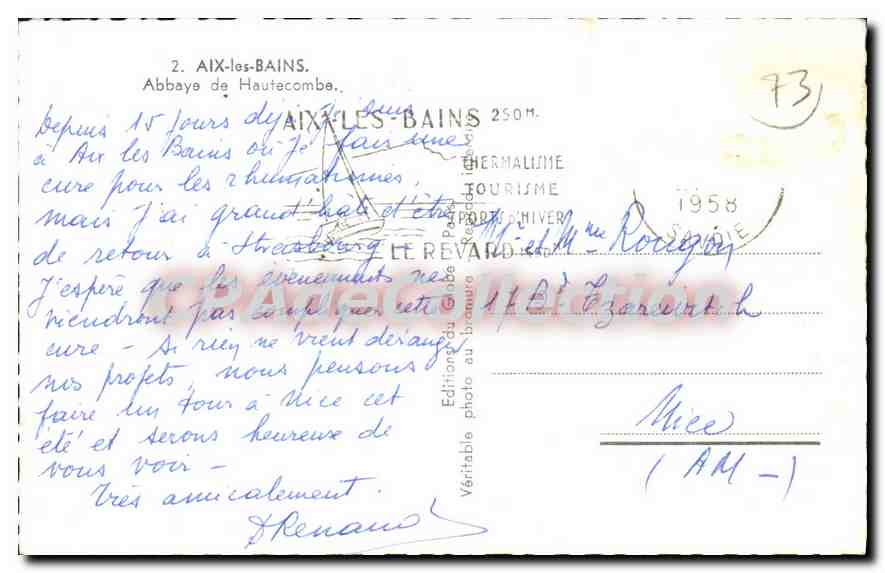 2. AIX-les-BAINS.
Abbaye de Hautecombe.
73
AIX-LES-BAINS 250M.
THERMALISME
TOURISME
SPORTS D'HIVER
LE REVARD
1958
SAVOIE
Depuis 15 jours déjà je suis
à Aix les Bains où je fais une
cure pour les rhumatismes,
mais j'ai grand'hâte d'être
de retour à Strasbourg
J'espère que les évènements ne
viendront pas compliquer cette
cure - Si rien ne vient déranger
nos projets, nous pensons
faire un tour à Nice cet
été et serons heureux de
vous voir -
Très amicalement.
Renaud
Editions du Globe Paris
Véritable photo au bromure Reproduction interdite
Mr et Mme Rougon
17 Bd Tzarewitch
Nice
(AM-)
CPAdeCollection